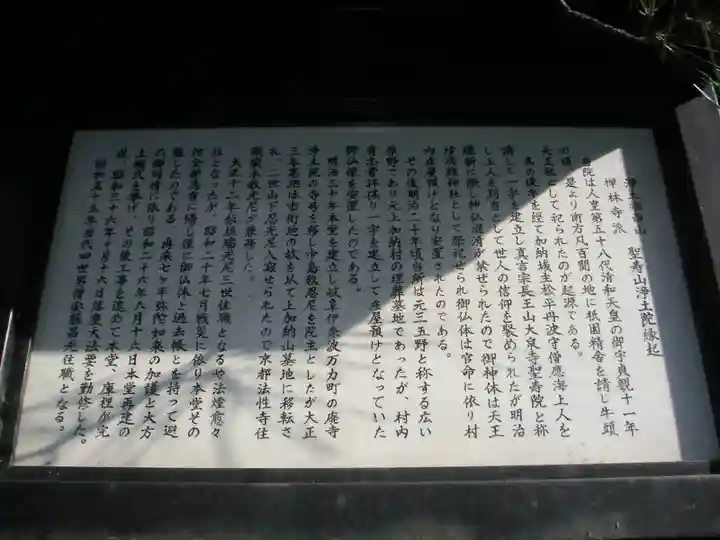 浄土宗西山　聖寿山浄土院縁起
禅林寺派
当院は人皇第五十八代清和天皇の御宇貞観十一年
の頃、是より南方凡百間の地に祇園精舎を請じ牛頭
天王社として祀られたのが起源である。
の後加納城主松平丹波守僧應海上人を
請じ一宇を建立し真言宗長王山大泉寺聖寿院と称
し上人を別当として世人の信仰を聚められたが明治
維新に際し神仏混淆が禁ぜられたので御神体は天王
神社として祭祀せられ御仏体は官命に依り村
内庄屋預けとなり安置されたのである。
その後明治二十年頃当所は元三五野と称する広い
原野であり元上加納村の埋葬墓地であったが、村内
有志者一宇を建立して庄屋預けとなっていた
御仏像を安置したのである。
明治三十年本堂を建立し岐阜伊奈波万力町の廃寺
浄土院の寺号を移し中島教忍尼を院主としたが大正
三年墓地は市街地の故を以て上加納山基地に移転さ
れ、二世山下忍光尼入寂せられたので京都法性寺住
職尼が兼務した。
大正十二年尼三世住職となるや法燈愈々
となったが、昭和二十年七月戦災に依り本堂その
他全部烏有に帰し僅に御仏体と過去帳とを持って避
難したのである。再来七ヶ年弥陀如来の加護と大方
の御同情に依り昭和二十六年六月十六日本堂再建の
上棟式を挙げ、その後工事を進めて本堂、庫裡が完
成、昭和三十六年十月十六日落慶大法要を勤修した。
昭和五十五年当代四世住職となる。